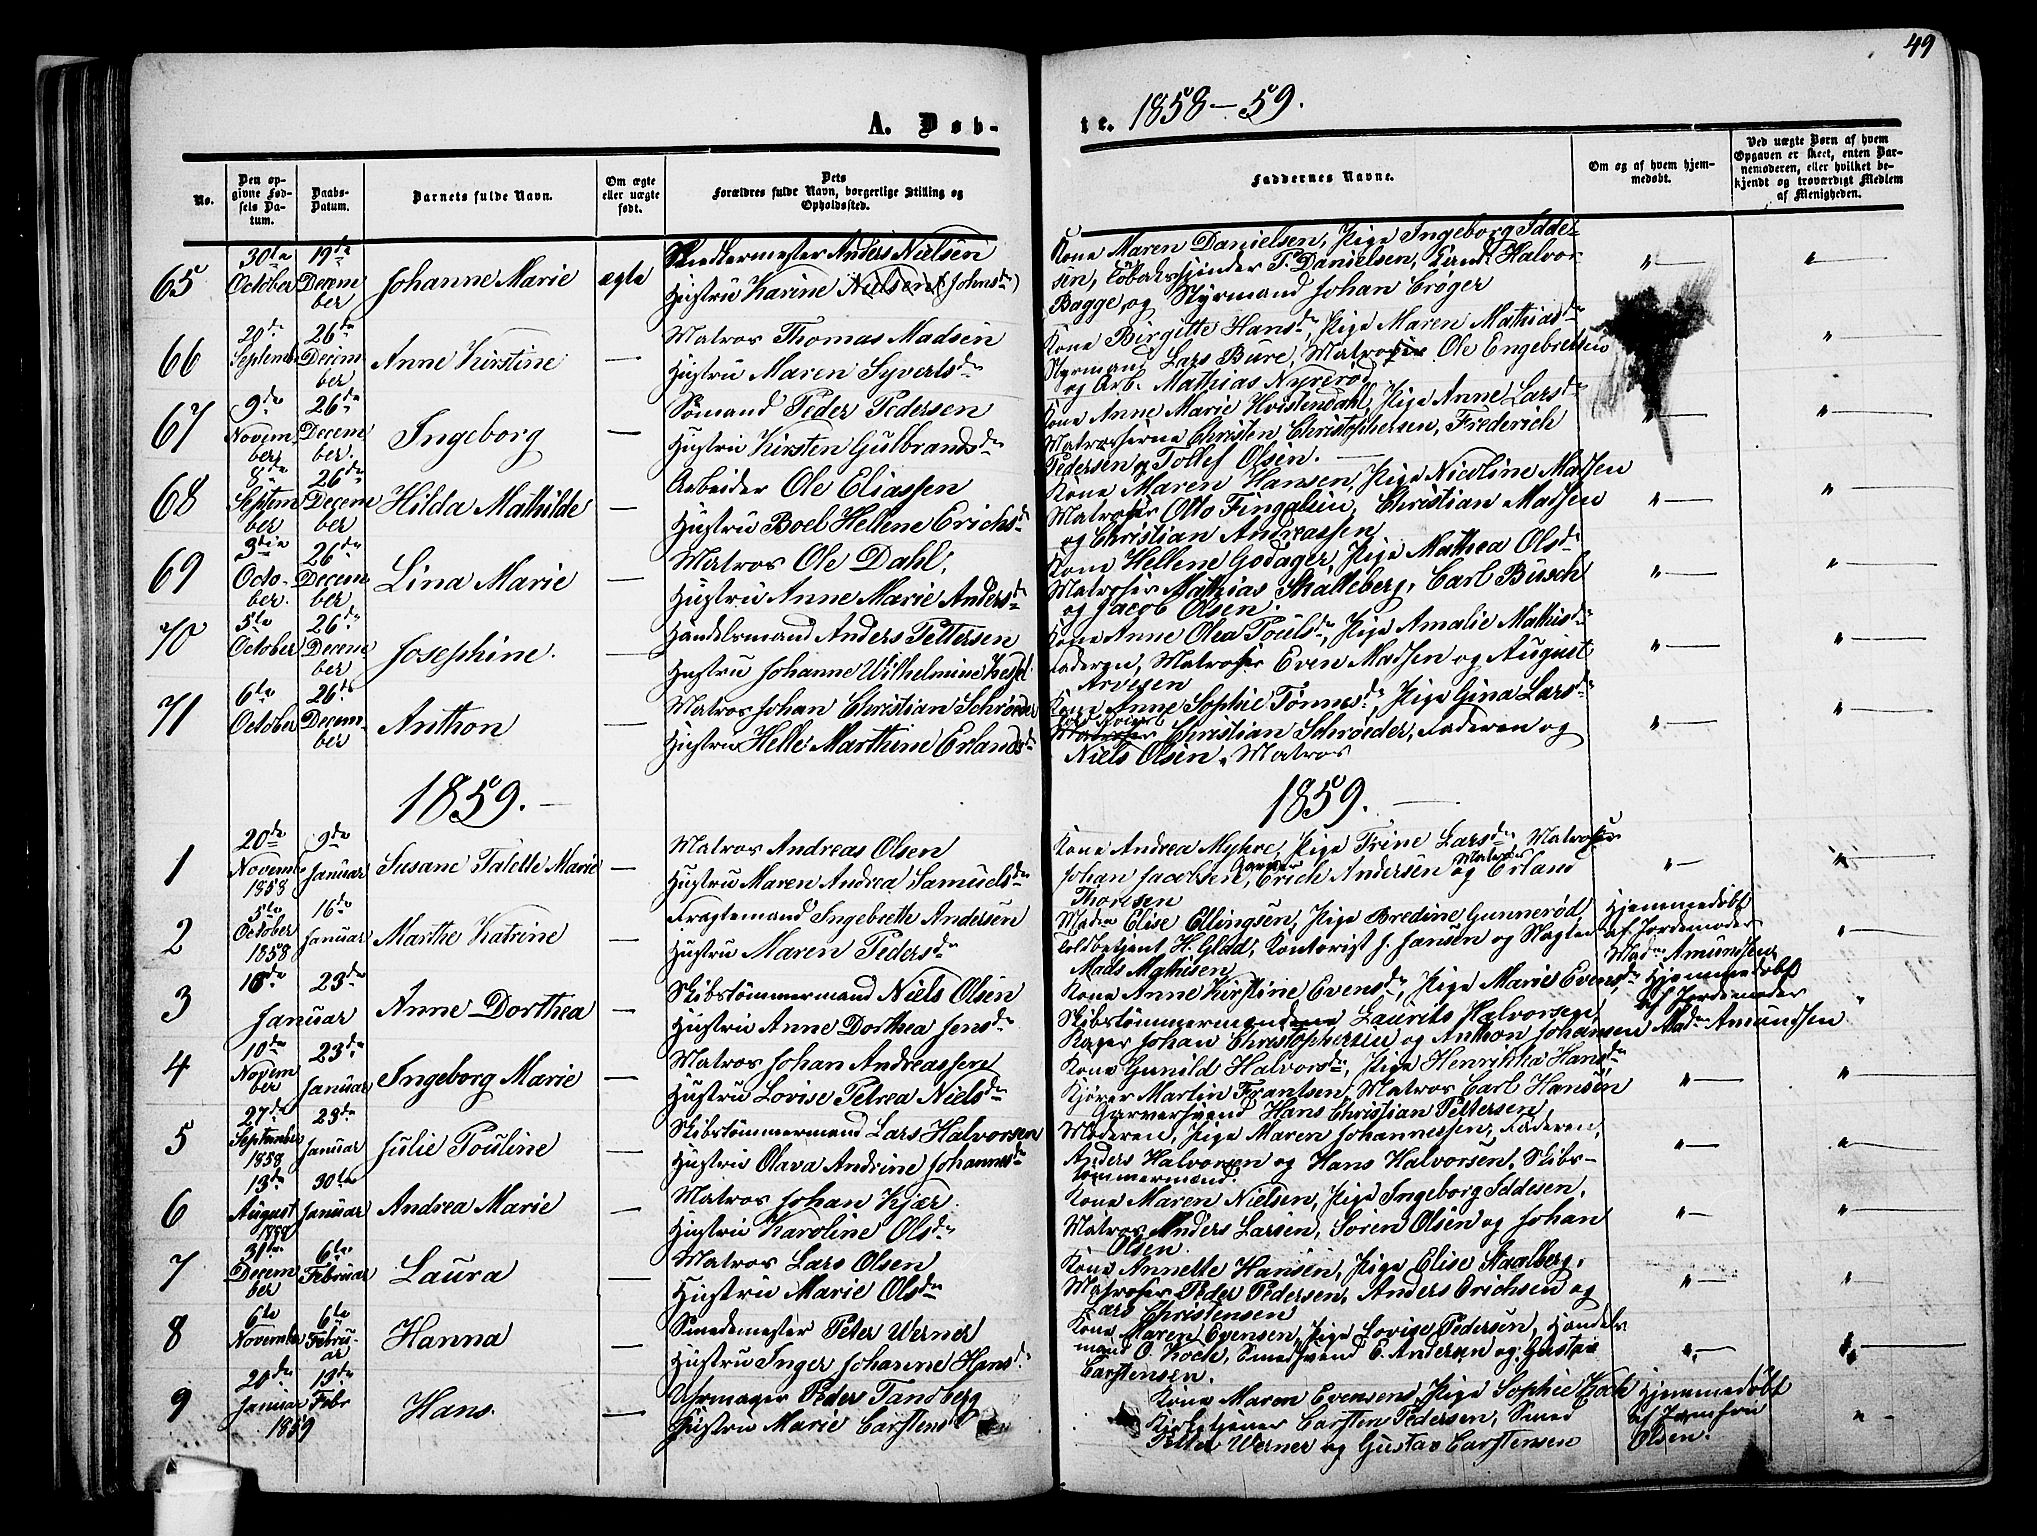 49
A. Døb-
te. 1858-59.
No.
Den opgivne Fødsels Datum.
Daabs-Datum.
Barnets fulde Navn.
Om ægte eller uægte født.
Dets Forældres fulde Navn, borgerlige Stilling og Opholdssted.
Faddernes Navne.
Om og af hvem hjemmedøbt.
Ved uægte Børn af hvem Opgaven er skeet, enten Barnemoderen, eller hvilket bekjendt og troværdigt Medlem af Menigheden.
65 30te October 19de December Johanne Marie ægte
Snedkermester Anders Nielsen
Hustru Karine Nielsen (Johnsdr)
Kone Maren Danielsen, Pige Ingeborg Idde-
sen, Tobaksspinder T. Danielsen, Halvor
Bagge, og Styrmand Johan Crøger
66 20de Septemb 26de December Anne Kirstine —
Matros Thomas Madsen
Hustru Maren Syvertsdr
Kone Birgitte Hansdr, Pige Maren Mathiasdr
Styrmand Lars Bure, Matros Ole Engebretsen
og Arb. Mathias Nyrerød
67 9de November 26de December. Ingeborg —
Sömand Peder Pedersen
Hustru Kirsten Gulbrandsdr
Kone Anne Marie Hvistendahl, Pige Anne Larsdr
Matroserne Christen Christophersen, Frederich
Pedersen og Tollef Olsen. —
68 8de September 26de December Hilda Mathilde —
Arbeider Ole Eliassen
Hustru Boel Hellene Erichsdr
Kone Maren Hansen, Pige Nicoline Madsen
Matroser Otto Fingalsen, Christian Madsen
og Christian Andreassen
69 3die October. 26de December Lina Marie —
Matros Ole Dahl,
Hustru Anne Marie Andersdr
Kone Hellene Godager, Pige Mathea Olsdr
Matroser Mathias Skalleberg, Carl Busch
og Jacob Olsen.
70 5te October 26de December Josephine. —
Handelsmand Anders Pettersen
Hustru Johanne Wilhelmine Kessel
Kone Anne Olea Poulsdr, Pige Amalie Mathisdr
Faderen, Matroser Even Madsen og August
Arvesen
71 6te October 26de December Anthon —
Matros Johan Christian Schrøder
Hustru Helle Marthine Erlandsdr
Kone Anne Sophie Tønnesdr, Pige Gina Larsdr
Christian Schrøeder, Faderen og
Niels Olsen, Matros
1859. —
1859. —
1 20de Novemb 1858 9de Januar Susane Talette Marie —
Matros Andreas Olsen
Hustru Maren Andrea Samuelsdr
Kone Andrea Myhre, Pige Trine Larsdr Matroser
Johan Jacobsen, Garver Erich Andersen og Matros Erland
Thoresen
2 5te October 1858 16de Januar Marthe Katrine —
Fragtemand Ingebreth Andersen
Hustru Maren Pedersdr
Madm Elise Ellingsen, Pige Bredine Gunnerød,
Toldbetjent H. Glad, Kontorist J. Jansen og Slagter
Mads Mathisen
Hjemmedøbt af Jordemoder Madm Amundsen
3 18de Januar 23de Anne Dorthea —
Skibstömmermand Niels Olsen
Hustru Anne Dorthea Jensdr
Kone Anne Kirstine Evensdr, Pige Marie Evensdr,
Skibstömmermændene Laurits Halvorsen,
Johan Christophersen og Anthon Johansen
Hjemmedøbt af Jordemoder Madm Amundsen
4 10de November 23de Januar Ingeborg Marie —
Matros Johan Andreassen
Hustru Lovise Petrea Nielsdr
Kone Gunild Halvorsdr, Pige Henrikka Hansdr
Kjører Martin Frantsen, Matros Carl Hansen
Garversvend Hans Christian Pettersen
5 27de September 1858 23de Januar Julie Pouline —
Skibstömmermand Lars Halvorsen
Hustru Olava Andrine Johannesdr
Moderen, Pige Maren Johannessen, Faderen,
Anders Halvorsen og Hans Halvorsen, Skibs-
tömmermænd.
6 13de August 30te Januar Andrea Marie —
Matros Johan Kjær
Hustru Karoline Olsdr
Kone Maren Nielsen, Pige Ingeborg Iddesen,
Matros Anders Larsen, Sören Olsen og Johan
Olsen.
7 31te December 6te Februar Laura —
Matros Lars Olsen
Hustru Marie Olsdr
Kone Annette Hansen, Pige Elise Staalberg,
Matroser Peder Pedersen, Anders Erichsen og
Lars Christensen
8 6te Novembr 6te Februar Hanna —
Smedemester Peter Werner
Hustru Inger Johanne Hansdr
Kone Maren Evensen, Pige Lovise Pedersen, Handels-
mand O. Koch, Smedsvend E. Andersen og Gustav
Carstensen.
9 20de Januar 1859 13de Febr Hans. —
Uhrmager Peder Tandberg
Hustru Marie Carstensdr
Kone Maren Evensens, Pige Sophie Koch
Kirketjener Carsten Pedersen, Smed
Petter Werner og Gustav Carstensen
Hjemmedøbt af Jomfru Olsen.